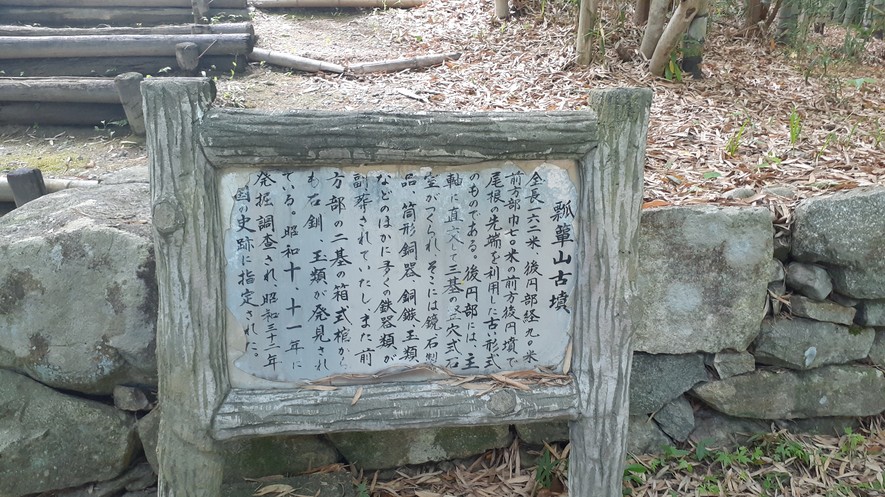 瓢簞山古墳
全長一六二米、後円部経九〇米
前方部巾七〇米の前方後円墳で
尾根の先端を利用した古い形式
のものである。後円部には、主
軸に直交して三基の竪穴式石
室がつくられ、そこには鏡、石製
品、筒形銅器、銅鏃、玉類
などのほかに多くの鉄器類が
副葬されていたし、また前
方部の二基の箱式棺から
も石釧、玉類、が発見され
ている。昭和十、十一年に
発掘調査され、昭和三十二年
国の史跡に指定された。